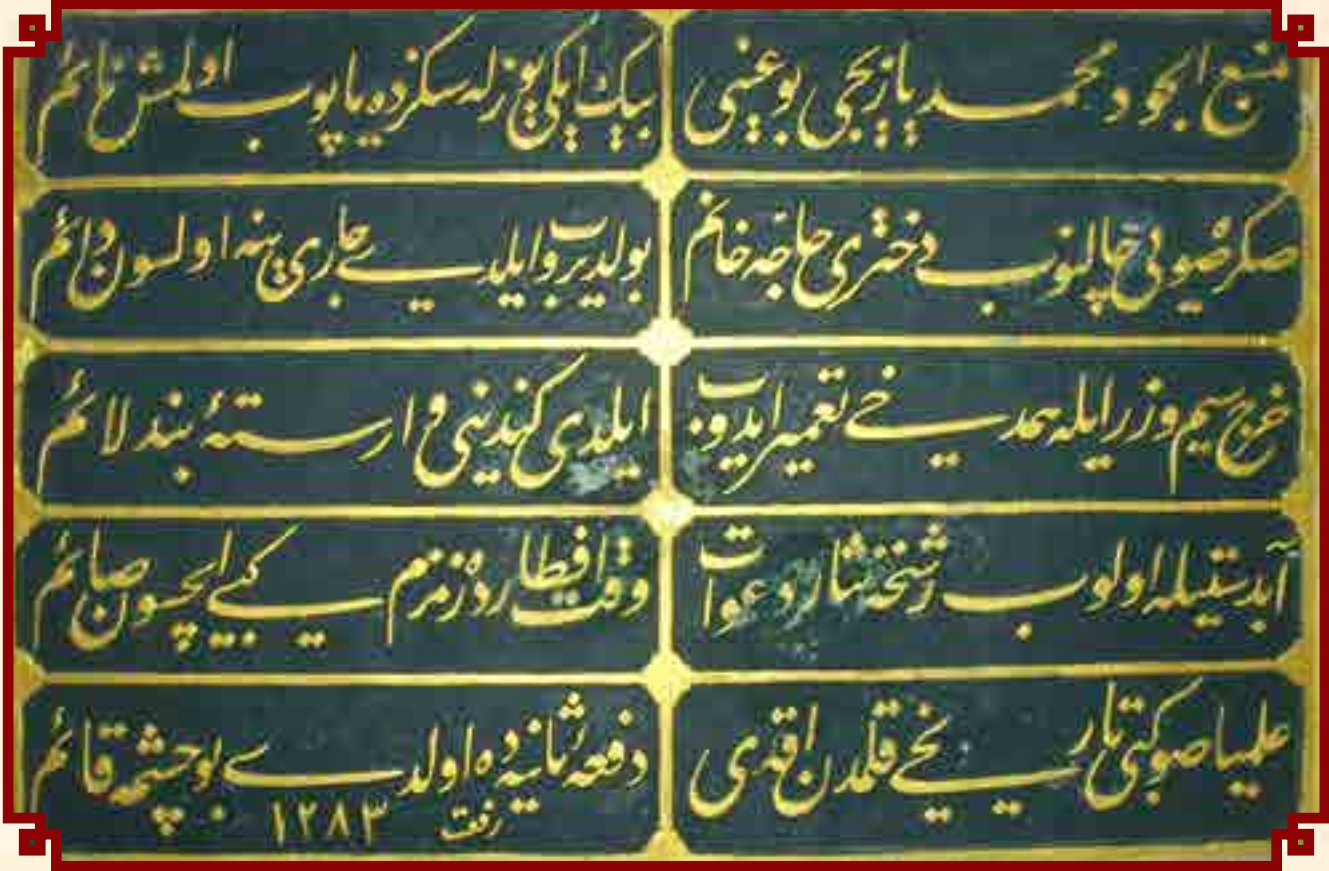 منبع الجود محمد يازيجى بو عينى
بيك ايكى يوزله سكزده ياپوب اولمش نائم
صكره صويى چالنوب دخترى حاجه خانم
بولديروب ايلدى جارى ينه اولسون دائم
خرج سيم وزر ايله همدخى تعمير ايدوب
ايلدى كندينى وارستۀ بند لائم
آبدستيله اولوب دعوات
وقت افطارده زمزم كبى ايچسون صائم
عليا صو كبى تاريخى قلمدن اقدى
دفعه ثانيه ده اولدى بو چشمه قائم
رفعت ١٢٨٣